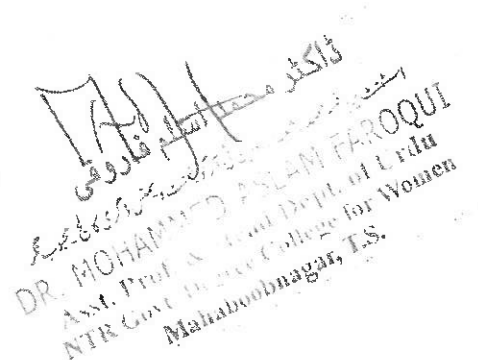 ڈاکٹر محمد اسلم فاروقی
اسسٹنٹ
DR. MOHAMMED ASLAM FAROQUI
Asst. Prof & Head Dept. of Urdu
NTR Govt Degree College for Women
Mahaboobnagar, T.S.